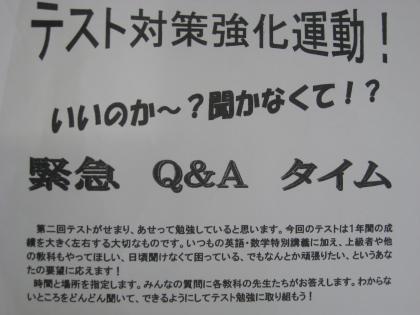 テスト対策強化運動！
いいのか～？聞かなくて！？
緊急　Q&A　タイム
第二回テストがせまり、あせって勉強していると思います。今回のテストは1年間の成
績を大きく左右する大切なものです。いつもの英語・数学特別講義に加え、上級者や他
の教科もやってほしい、日頃聞けなくて困っている、でもなんとか頑張りたい、というあな
たの要望に応えます！
時間と場所を指定します。みんなの質問に各教科の先生たちがお答えします。わからな
いところをどんどん聞いて、できるようにしてテスト勉強に取り組もう！